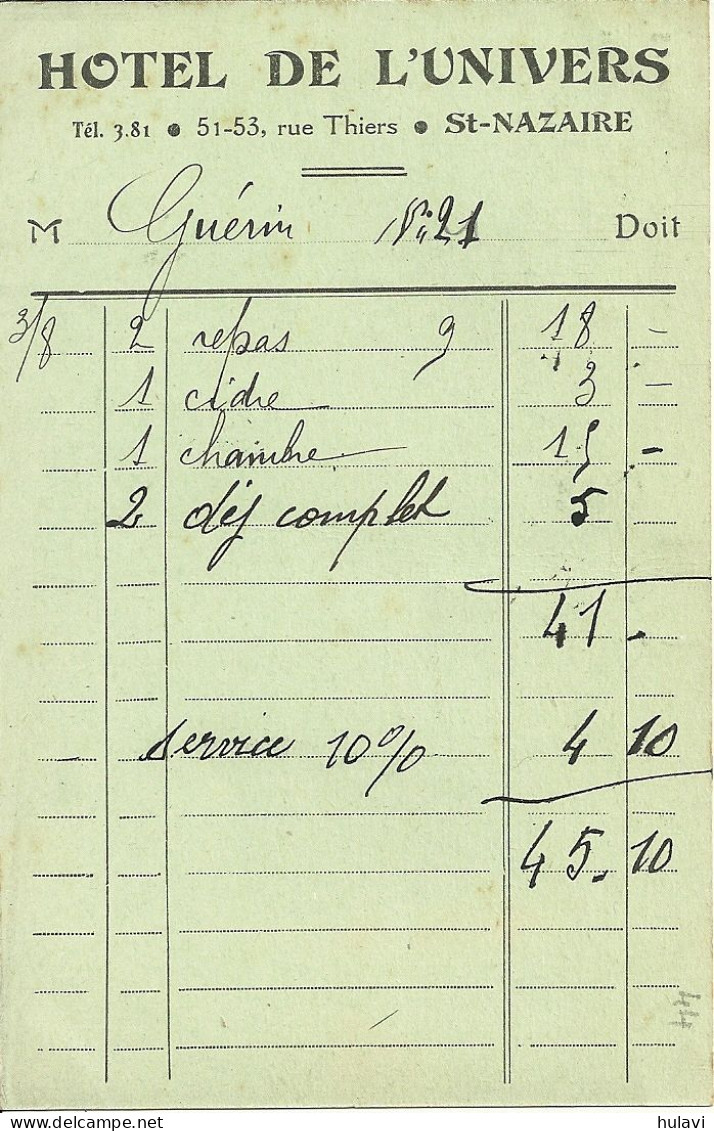 HOTEL DE L'UNIVERS
Tél. 3.81 • 51-53, rue Thiers • St-NAZAIRE
M Guérin N° 21 Doit
3/8 2 repas 9 18 -
1 cidre 3 -
1 chambre 15 -
2 déj complet 5
41 -
- service 10% 4 10
45. 10
44
hulavi